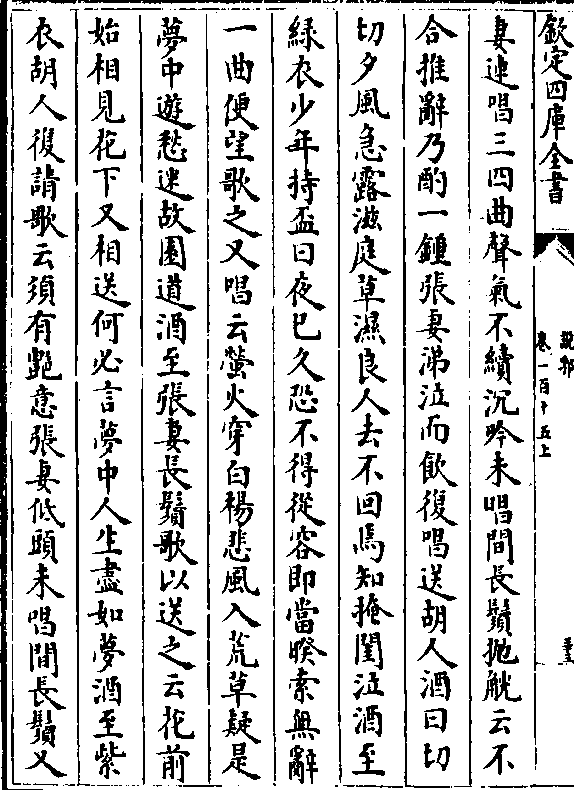 欽定四庫全書
說郛
卷一百十五上
妻連唱三四曲聲氣不續沉吟未唱間長鬚抛觥云不
合推辭乃酌一鍾張妻涕泣而飲復唱送胡人酒曰切
切夕風急露滋庭草濕良人去不回焉知掩閨泣酒至
綠衣少年持盃曰夜已久恐不得從容即當暌索無辭
一曲便望歌之又唱云螢火穿白楊悲風入荒草疑是
夢中遊愁迷故園道酒至張妻長鬚歌以送之云花前
始相見花下又相送何必言夢中人生盡如夢酒至紫
衣胡人復請歌云須有艷意張妻低頭未唱間長鬚又